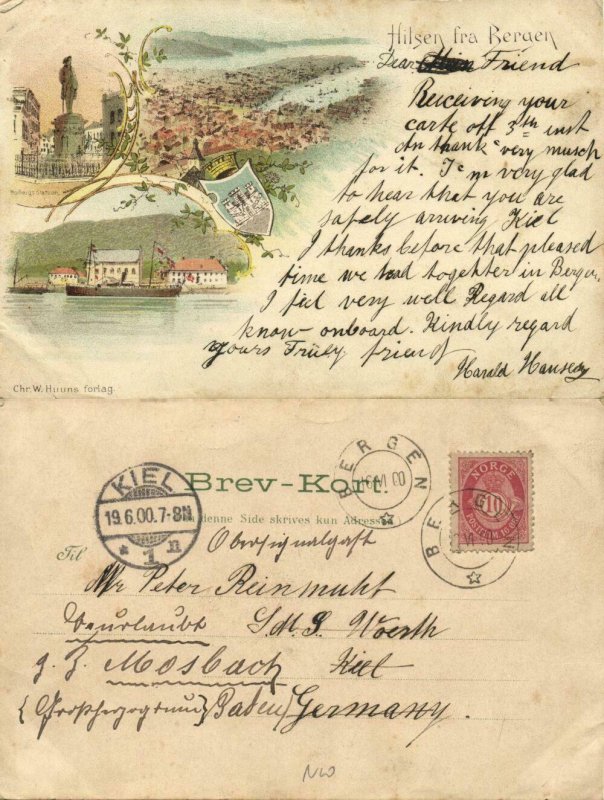 Hilsen fra Bergen
Dear Friend
Receiving your
carte off 3th inst
An thank very musch
for it. I'm very glad
to hear that you are
safely arriving Kiel
I thanks before that pleased
time we had togehter in Bergen
I fell very well Regard all
know onboard. Kindly regard
yours Truly friend
Harald
Holbergs Statuen
Chr. W. Huuns forlag.
BERGEN
KIEL
19.6.00.7-8N
* 1 n
Brev-Kort.
denne Side skrives kun Adressen
NORGE
10
POSTFRIM
BERGEN
Obersignalgast
Til
Mr Peter Reinmuht
Beurlaubt S.M.S. Woerth
z. Z. Mosbach Kiel
(Großherzogtum) Baden) Germany.
NW